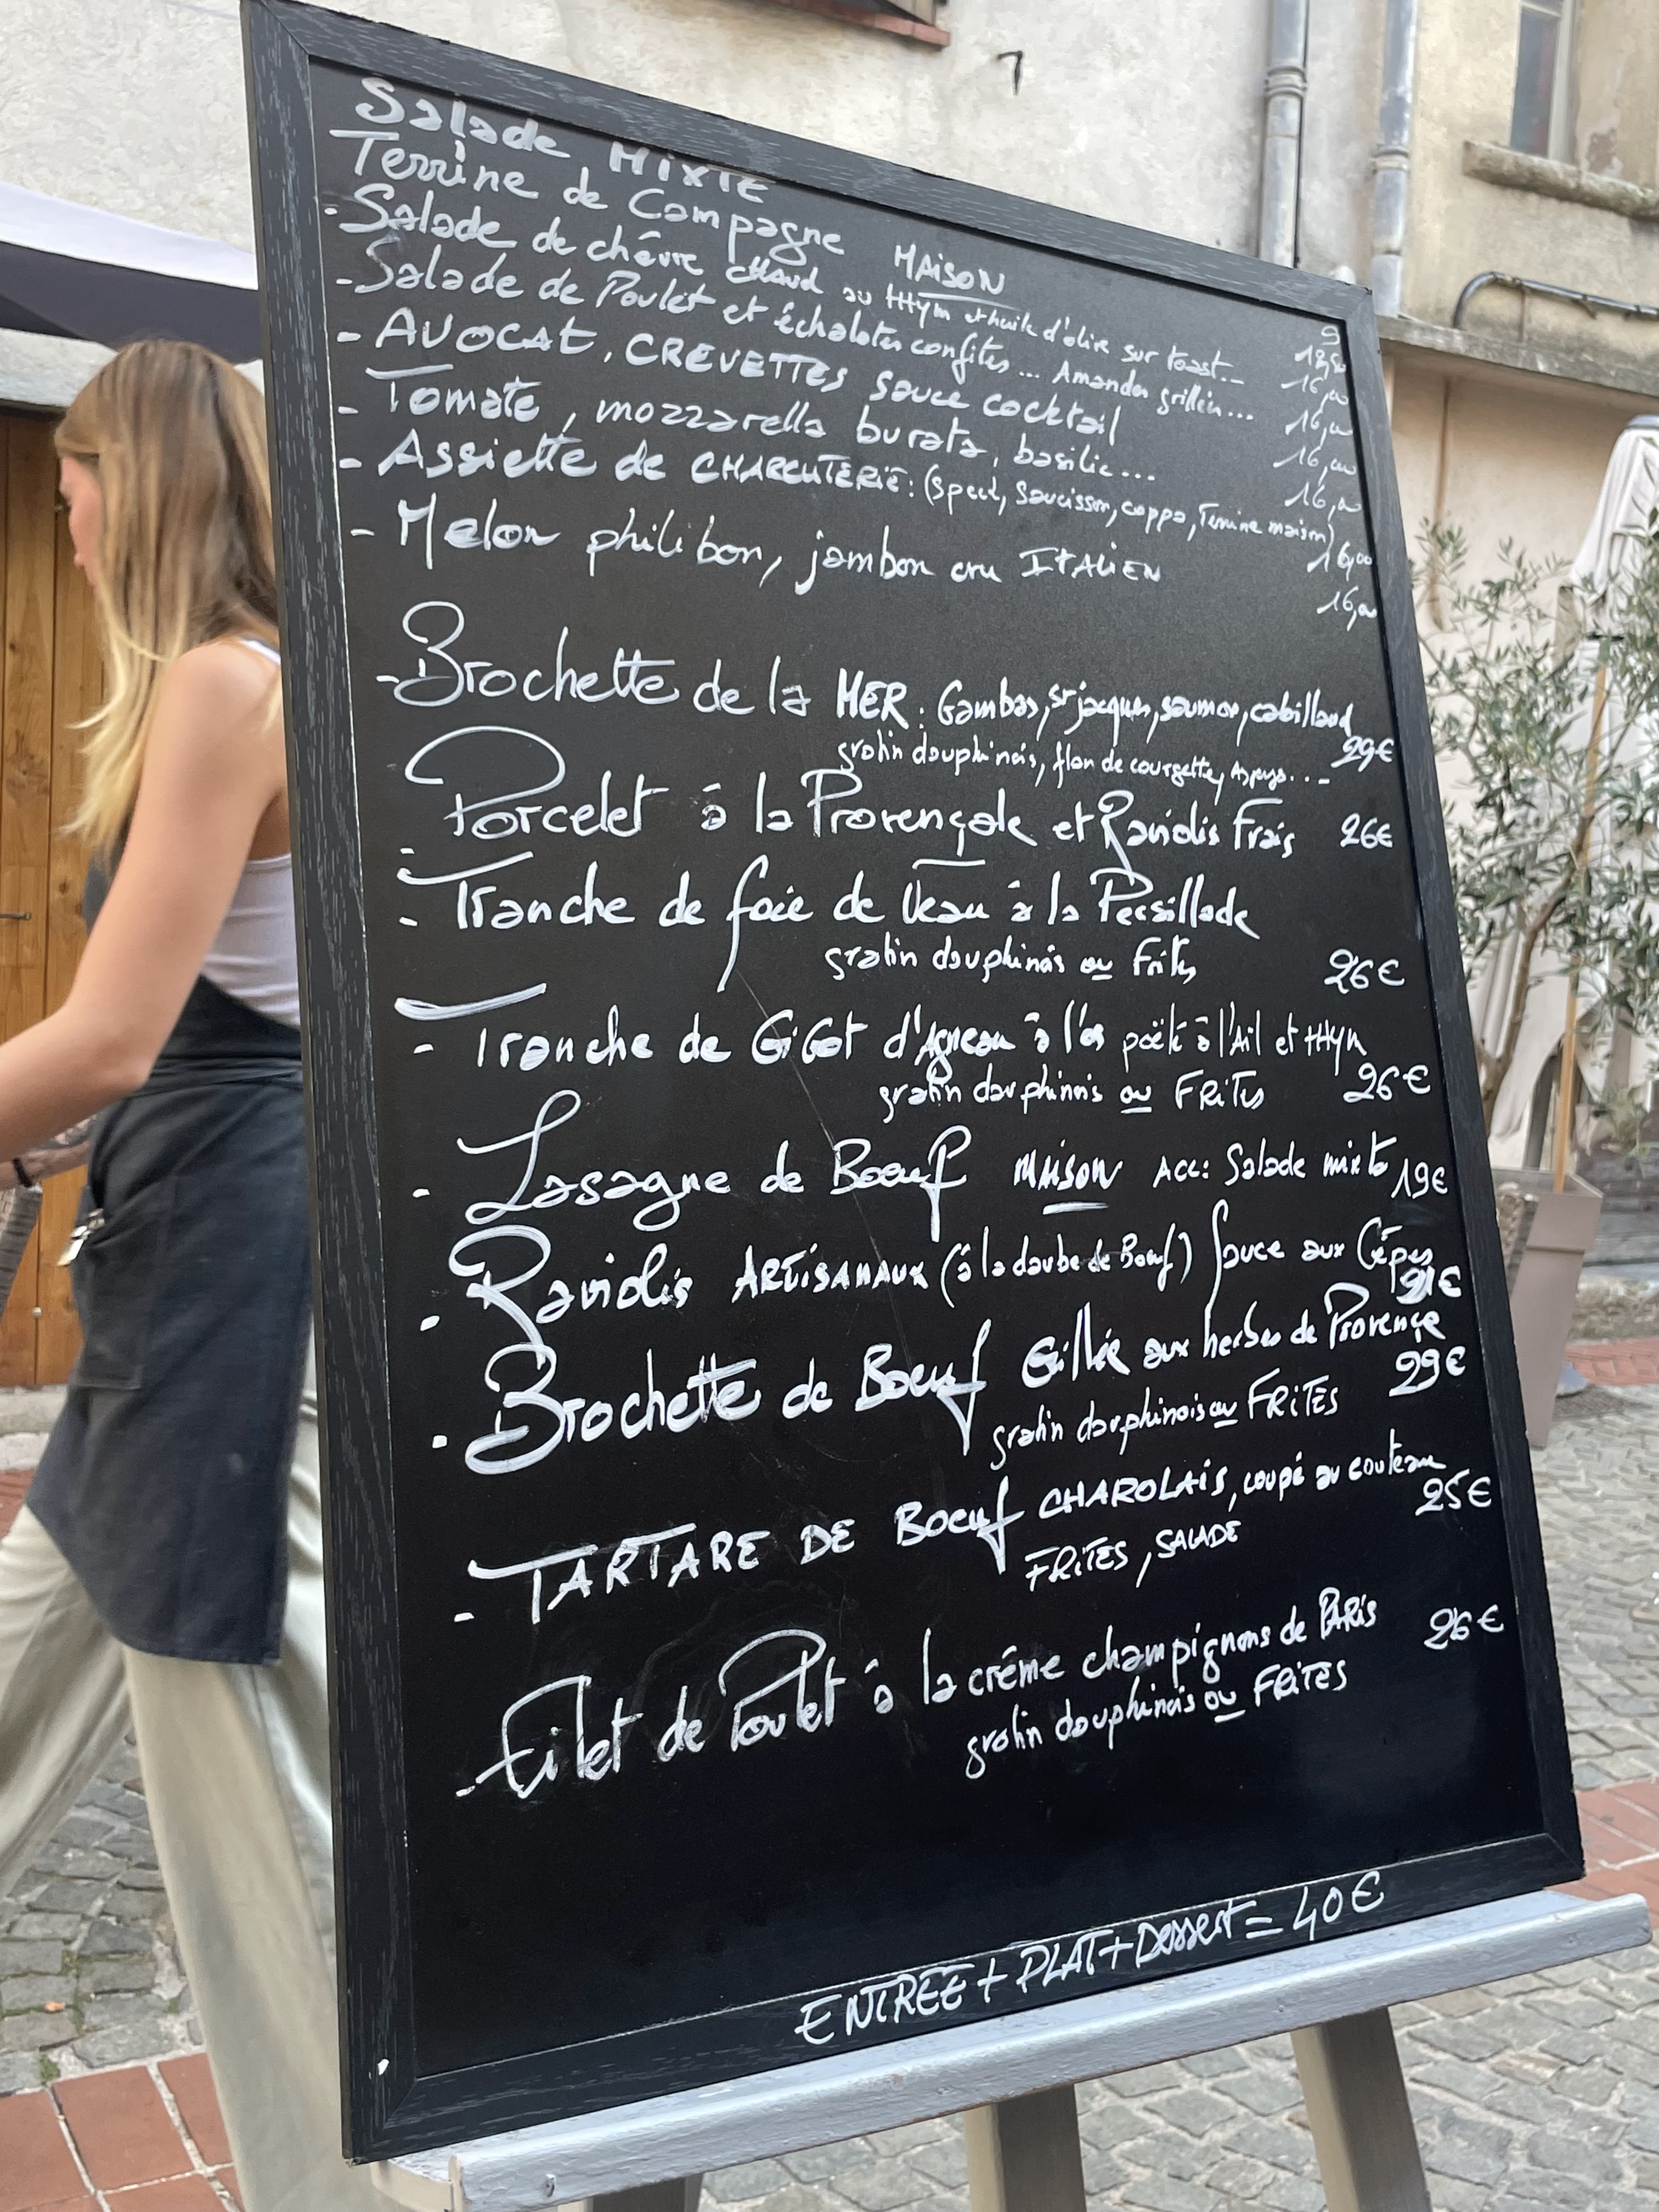 Salade MIXTE 9
Terrine de Campagne MAISON
- Salade de chèvre CHAUD au tHym et huile d'olive sur toast... 16,00
- Salade de Poulet et échalotes confites... Amandes grillées... 16,00
- AVOCAT, CREVETTES sauce cocktail 16,00
- Tomate, mozzarella burata, basilic... 16,00
- Assiette de CHARCUTERIE: (speck, saucisson, coppa, Terrine maison) 16,00
- Melon philibon, jambon cru ITALIEN 16,00
- Brochette de la MER: Gambas, St jacques, saumon, cabillaud
gratin dauphinois, flan de courgette, Asperge... 29€
- Porcelet à la Provençale et Raviolis Frais 26€
- Tranche de foie de Veau à la Persillade
gratin dauphinois ou Frites 26€
- Tranche de GiGot d'Agneau à l'os poëlé à l'Ail et tHym
gratin dauphinois ou FRITES 26€
- Lasagne de Boeuf MAISON Acc: Salade mixte 19€
- Raviolis ARTISANAUX (à la daube de Boeuf) Sauce aux Cèpes 21€
- Brochette de Boeuf Grillée aux herbes de Provence
gratin dauphinois ou FRITES 29€
- TARTARE DE Boeuf CHAROLAIS, coupé au couteau
FRITES, SALADE 25€
- Filet de Poulet à la crème champignons de PARIS 26€
gratin dauphinois ou FRITES
ENTRÉE + PLAT + Dessert = 40€